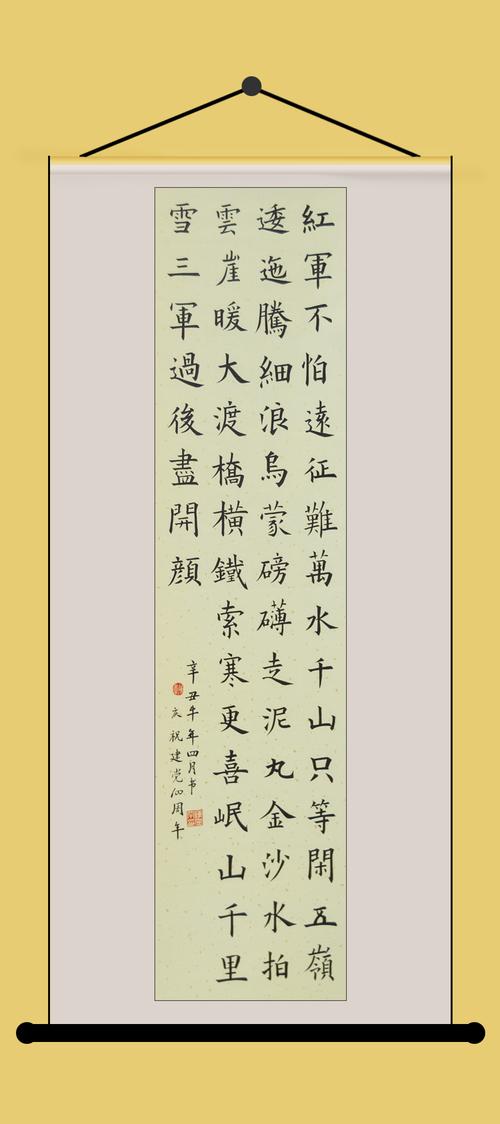 紅軍不怕遠征難萬水千山只等閑五嶺
逶迤騰細浪烏蒙磅礴走泥丸金沙水拍
雲崖暖大渡橋橫鐵索寒更喜岷山千里
雪三軍過後盡開顔
辛丑牛年四月书
庆祝建党100周年